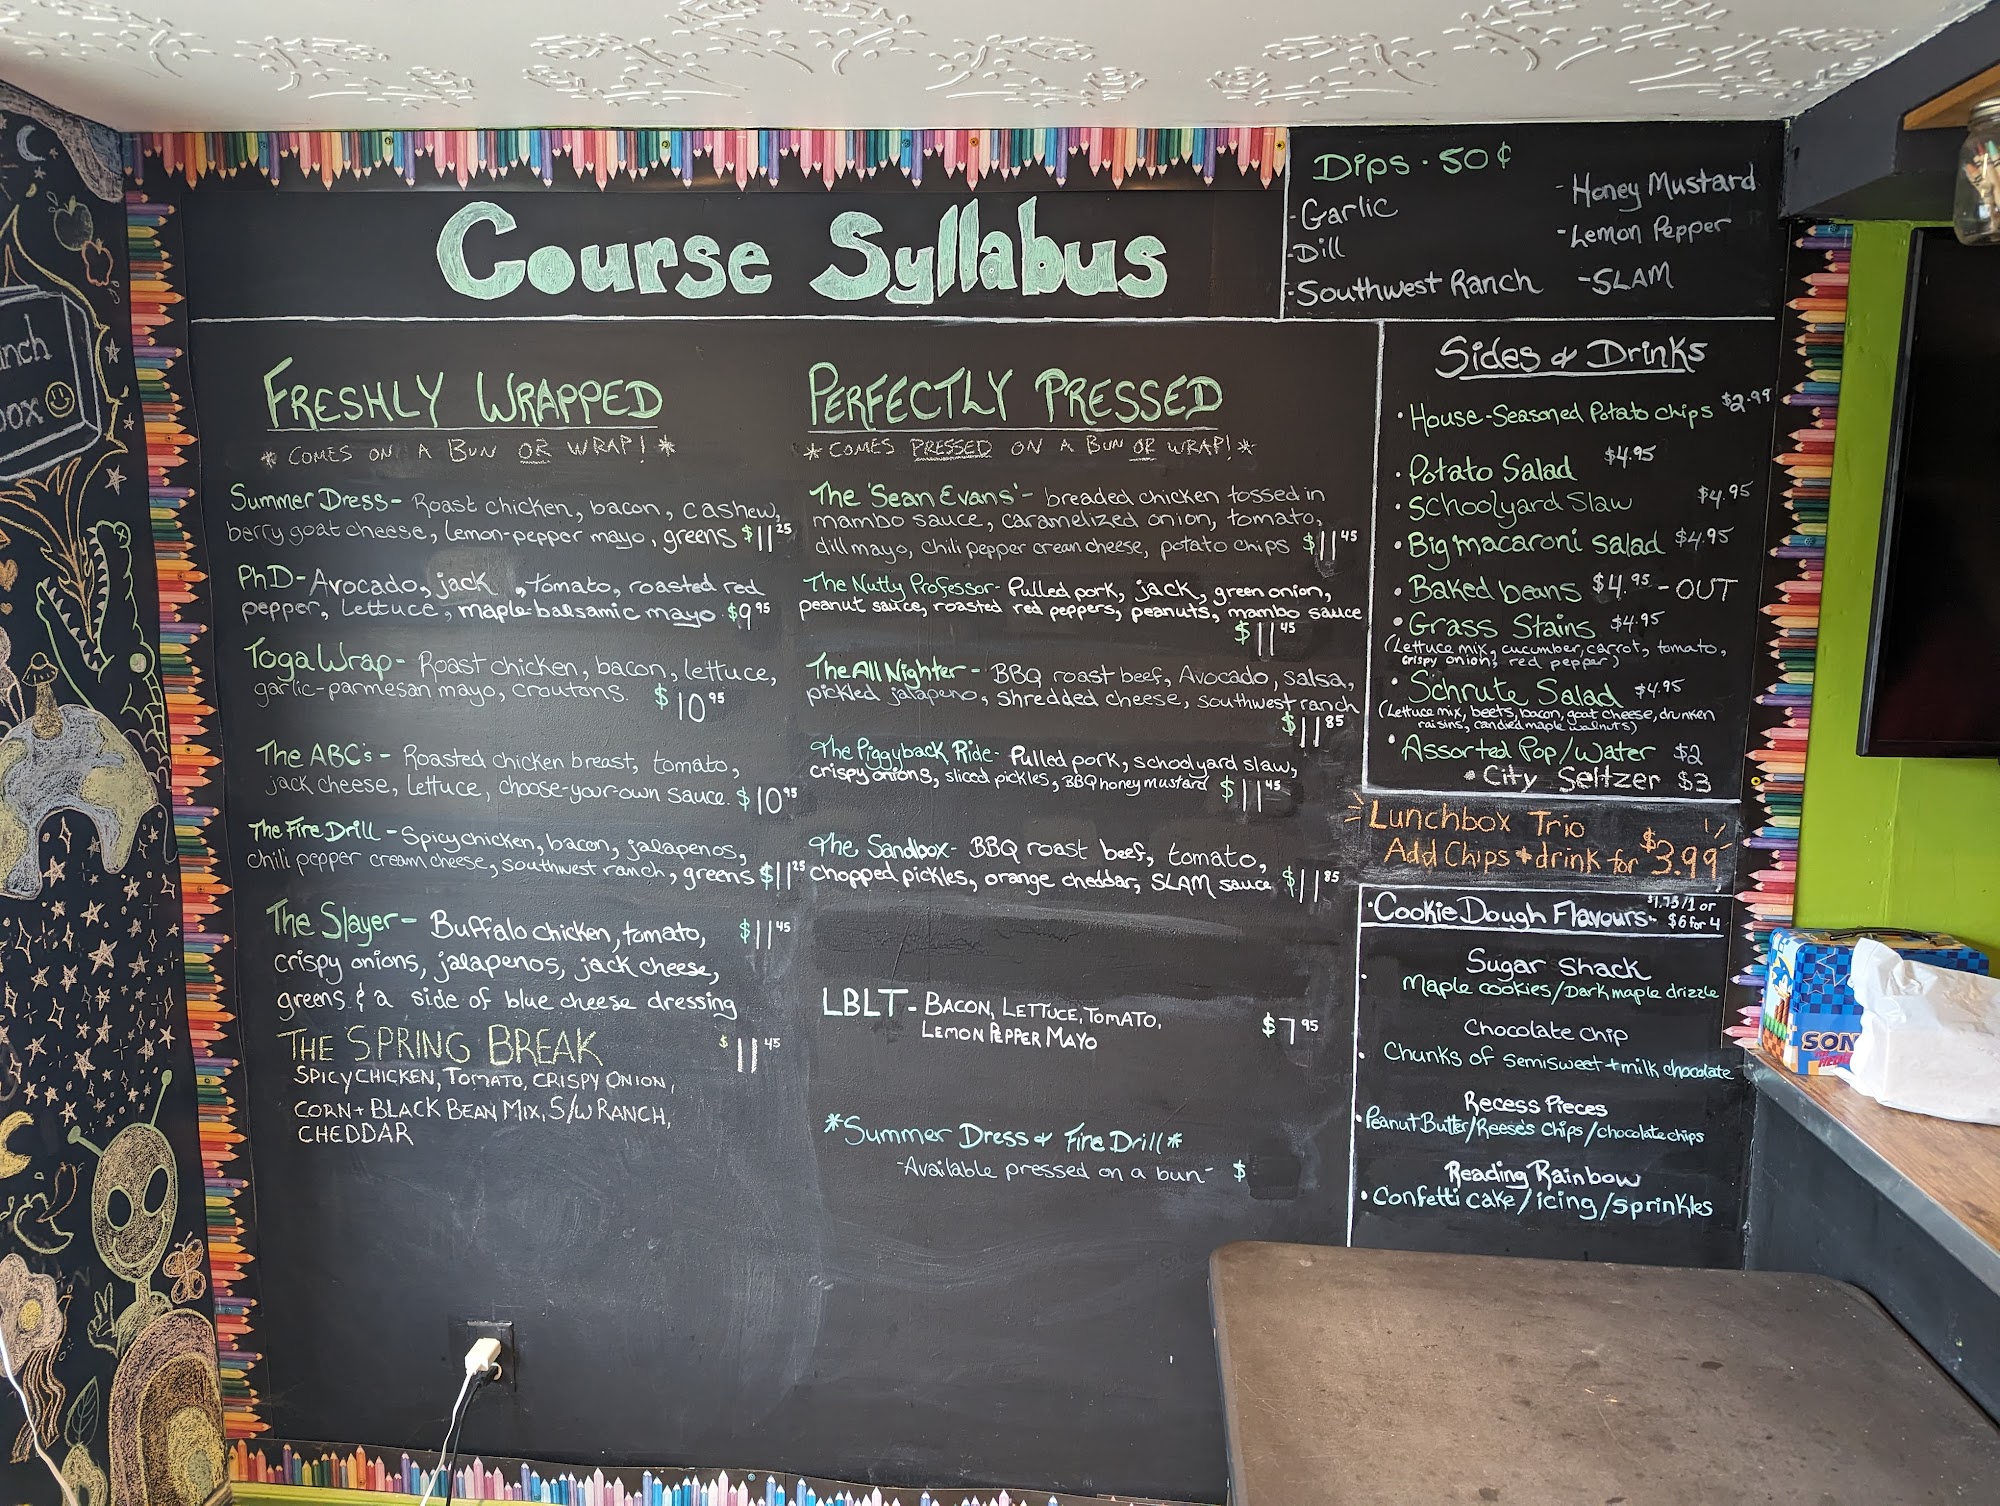 Course Syllabus
Dips · 50¢
- Garlic
- Dill
- Southwest Ranch
- Honey Mustard
- Lemon Pepper
- SLAM
FRESHLY WRAPPED
* COMES ON A BUN OR WRAP! *
Summer Dress - Roast chicken, bacon, cashew,
berry goat cheese, lemon-pepper mayo, greens $11.25
PhD - Avocado, jack , tomato, roasted red
pepper, lettuce, maple-balsamic mayo $9.95
Toga Wrap - Roast chicken, bacon, lettuce,
garlic-parmesan mayo, croutons. $10.95
The ABC's - Roasted chicken breast, tomato,
jack cheese, lettuce, choose-your-own sauce. $10.95
The Fire Drill - Spicy chicken, bacon, jalapenos,
chili pepper cream cheese, southwest ranch, greens $11.25
The Slayer - Buffalo chicken, tomato, $11.45
crispy onions, jalapenos, jack cheese,
greens & a side of blue cheese dressing
THE SPRING BREAK $11.45
SPICY CHICKEN, TOMATO, CRISPY ONION,
CORN + BLACK BEAN MIX, S/W RANCH,
CHEDDAR
PERFECTLY PRESSED
* COMES PRESSED ON A BUN OR WRAP! *
The 'Sean Evans' - breaded chicken tossed in
mambo sauce, caramelized onion, tomato,
dill mayo, chili pepper cream cheese, potato chips $11.45
The Nutty Professor - Pulled pork, jack, green onion,
peanut sauce, roasted red peppers, peanuts, mambo sauce
$11.45
The All Nighter - BBQ roast beef, Avocado, salsa,
pickled jalapeno, shredded cheese, southwest ranch
$11.85
The Piggyback Ride - Pulled pork, schoolyard slaw,
crispy onions, sliced pickles, BBQ honey mustard $11.45
The Sandbox - BBQ roast beef, tomato,
chopped pickles, orange cheddar, SLAM sauce $11.85
LBLT - BACON, LETTUCE, TOMATO,
LEMON PEPPER MAYO $7.95
*Summer Dress & Fire Drill*
- Available pressed on a bun - $
Sides & Drinks
• House-Seasoned Potato chips $2.99
• Potato Salad $4.95
• Schoolyard Slaw $4.95
• Big macaroni salad $4.95
• Baked beans $4.95 - OUT
• Grass Stains $4.95
(Lettuce mix, cucumber, carrot, tomato,
crispy onion, red pepper)
• Schrute Salad $4.95
(Lettuce mix, beets, bacon, goat cheese, drunken
raisins, candied maple walnuts)
• Assorted Pop/Water $2
• City Seltzer $3
Lunchbox Trio
Add Chips + drink for $3.99
• Cookie Dough Flavours • $1.75/1 or
$6 for 4
Sugar Shack
• Maple cookies/Dark maple drizzle
Chocolate chip
• Chunks of semisweet + milk chocolate
Recess Pieces
• Peanut Butter/Reese's chips/chocolate chips
Reading Rainbow
• Confetti cake/icing/sprinkles
unch
box
SON